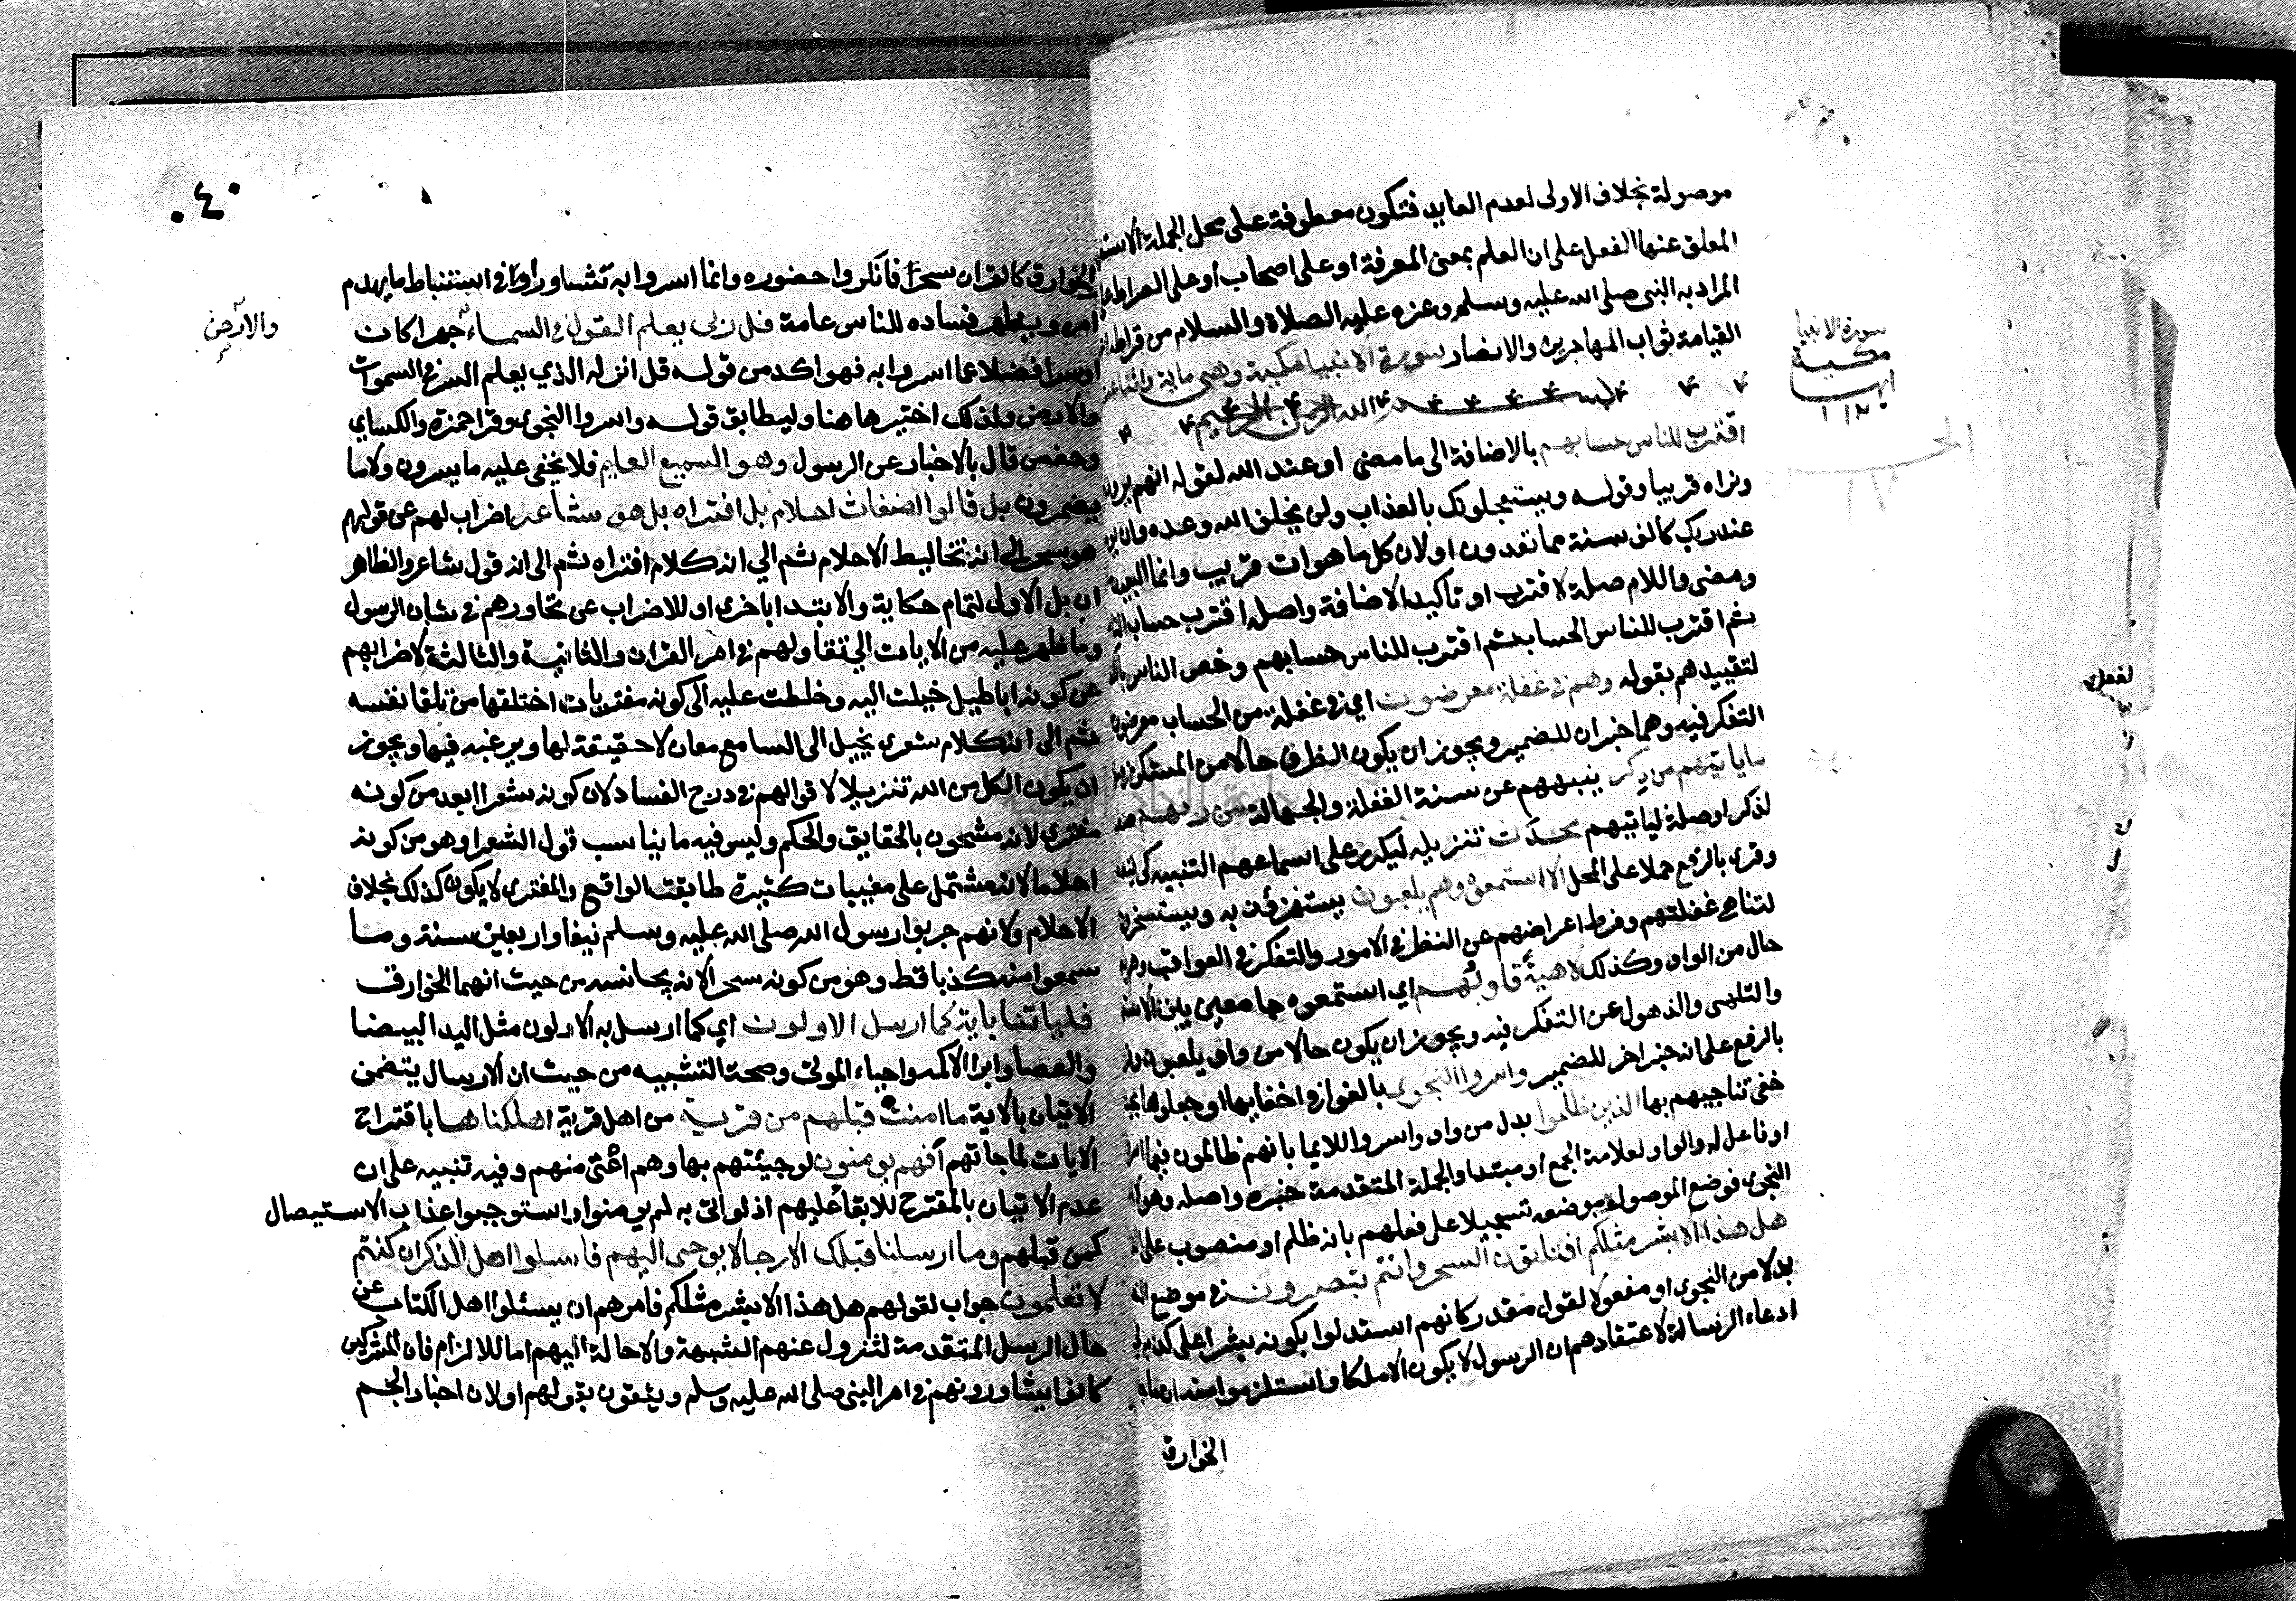 موصولة بخلاف الاولى لعدم العايد فتكون معطوفة على محل الجملة
المعلق عنها الفعل على ان العلم بمعنى المعرفة او على اصحاب او على الصراط
المراد به النبى صلى الله عليه وسلم وعنه عليه الصلاة والسلام من قرا طه
القيامة ثواب المهاجرين والانصار سورة الانبيا مكية وهى ماية واثنا
بسم الله الرحمن الرحيم
اقترب للناس حسابهم بالاضافة الى ما مضى او عند الله لقوله انهم يرونه
ونراه قريبا وقوله ويستعجلونك بالعذاب ولن يخلف الله وعده وان
عند ربك كالف سنة مما تعدون او لان كل ما هو ات قريب وانما البعيد
ومضى واللام صلة لاقترب او تاكيد الاضافة واصله اقترب حساب
ثم اقترب للناس الحساب ثم اقترب للناس حسابهم وخص الناس
لتقييدهم بقوله وهم فى غفلة معرضون اي فى غفلة من الحساب معرضون
التفكر فيه وهما خبران للضمير ويجوز ان يكون الظرف حالا من المستكن
ما ياتيهم من ذكر ينبههم عن سنة الغفلة والجهالة من ربهم
لذكر او صلة لياتيهم محدث تنزيله ليكرر على اسماعهم التنبيه كى
وقرى بالرفع حملا على المحل الا استمعوه وهم يلعبون يستهزؤن به ويستسخرون
لتناهى غفلتهم وفرط اعراضهم عن النظر فى الامور والتفكر فى العواقب
حال من الواو وكذلك لاهية قلوبهم اي استمعوه جامعين بين
والتلهى والذهول عن التفكر فيه ويجوز ان يكون حالا من واو يلعبون
بالرفع على انه خبر اخر للضمير واسروا النجوى بالغوا فى اخفايها او جعلوها
خفى تناجيهم بها الذين ظلموا بدل من واو واسروا للايما بانهم ظالمون فيما
او فاعل له والواو لعلامة الجمع او مبتدا والجملة المتقدمة خبره واصله
النجوى فوضع الموصول موضعه تسجيلا على فعلهم بانه ظلم او منصوب على
هل هذا الا بشر مثلكم افتاتون السحر وانتم تبصرون فى موضع
بدلا من النجوى او مفعولا لقول مقدر كانهم استدلوا بكونه بشرا على
ادعاء الرسالة لاعتقادهم ان الرسول لا يكون الا ملكا واستلزموا منه ان
الخوارق
سورة الانبيا
مكية
١١٢
٠٤٠
الخوارق كالقران سحرا فانكروا حضوره وانما اسروا به تشاورا فى استنباط ما يهدم
امره ويظهر فساده للناس عامة قل ربى يعلم القول فى السماء جهرا كان
والارض
او سرا فضلا عما اسروا به فهو اكد من قوله قل انزله الذي يعلم السر فى السموات
والارض ولذلك اختير هاهنا وليطابق قوله واسروا النجوى وقرا حمزة والكساي
وحفص قال بالاخبار عن الرسول وهو السميع العليم فلا يخفى عليه ما يسرون ولا ما
يضمرون بل قالوا اضغاث احلام بل افتراه بل هو شاعر اضراب لهم عن قولهم
هو سحر الى انه تخاليط الاحلام ثم الي انه كلام افتراه ثم الى انه قول شاعر والظاهر
ان بل الاولى لتمام حكاية والابتدا باخرى او للاضراب عن تحاورهم فى شان الرسول
وما ظهر عليه من الايات الى تقاولهم فى امر القران والثانية والثالثة لاضرابهم
عن كونه اباطيل خيلت اليه وخلطت عليه الى كونه مفتريات اختلقها من تلقا نفسه
ثم الى انه كلام شعرى يخيل الى السامع معان لا حقيقة لها ويرغبه فيها ويجوز
ان يكون الكل من الله تنزيلا لاقوالهم فى درج الفساد لان كونه شعرا ابعد من كونه
مفترى لانه مشحون بالحقايق والحكم وليس فيه ما يناسب قول الشعرا وهو من كونه
احلاما لانه مشتمل على مغيبات كثيرة طابقت الواقع والمفترى لا يكون كذلك بخلاف
الاحلام ولانهم جربوا رسول الله صلى الله عليه وسلم نيفا واربعين سنة وما
سمعوا منه كذبا قط وهو من كونه سحرا لانه يجانسه من حيث انهما الخوارق
فلياتنا باية كما ارسل الاولون اي كما ارسل به الاولون مثل اليد البيضا
والعصا وابرا الاكمه واحياء الموتى وصحة التشبيه من حيث ان الارسال يتضمن
الاتيان بالاية ما امنت قبلهم من قرية من اهل قرية اهلكناها باقتراح
الايات لما جاتهم أفهم يومنون لو جيئتهم بها وهم اعتى منهم وفيه تنبيه على ان
عدم الاتيان بالمقترح للابقا عليهم اذ لو اتى به لم يومنوا واستوجبوا عذاب الاستيصال
كمن قبلهم وما ارسلنا قبلك الا رجالا يوحى اليهم فاسلوا اهل الذكر ان كنتم
لا تعلمون جواب لقولهم هل هذا الا بشر مثلكم فامرهم ان يسئلوا اهل الكتاب عن
حال الرسل المتقدمة لتزول عنهم الشبهة والاحالة اليهم اما للالزام فان المشركين
كانوا يشاورونهم فى امر النبى صلى الله عليه وسلم ويثقون بقولهم او لان اخبار الجم